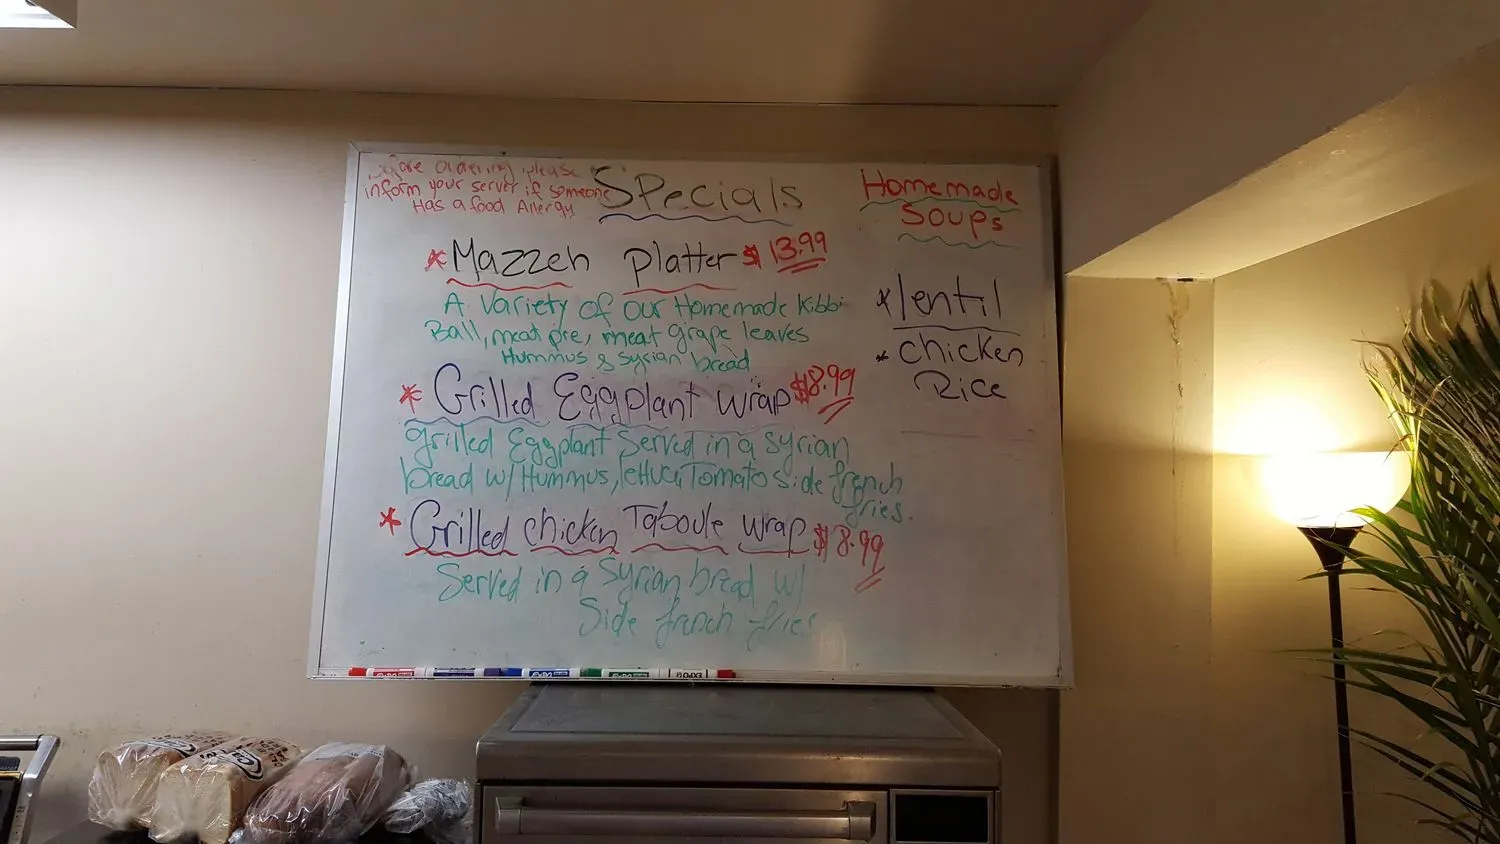 Before ordering please
inform your server if someone
Has a food Allergy
Specials
* Mazzeh Platter $13.99
A variety of our Homemade Kibbi
Ball, meat pie, meat grape leaves
Hummus & Syrian bread
* Grilled Eggplant wrap $8.99
grilled Eggplant Served in a Syrian
bread w/ Hummus, lettuce, Tomato side french
fries.
* Grilled chicken Taboule wrap $8.99
Served in a Syrian bread w/
Side french fries
Homemade
Soups
* lentil
* chicken
Rice
EXPO